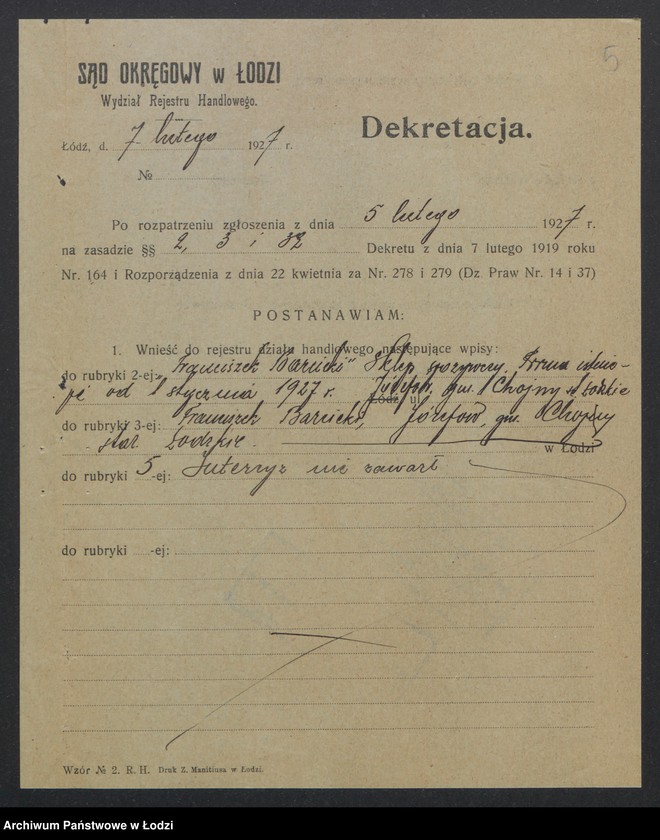 5
SĄD OKRĘGOWY w ŁODZI
Wydział Rejestru Handlowego.
Dekretacja.
Łódź, d. 7 lutego 1927 r.
№
Po rozpatrzeniu zgłoszenia z dnia 5 lutego 1927 r.
na zasadzie §§ 2, 3 i 32 Dekretu z dnia 7 lutego 1919 roku
Nr. 164 i Rozporządzenia z dnia 22 kwietnia za Nr. 278 i 279 (Dz Praw Nr. 14 i 37)
POSTANAWIAM:
1. Wnieść do rejestru działu handlowego następujące wpisy:
do rubryki 2-ej: „Franciszek Barucki" Sklep spożywczy. Firma istnie-
je od 1 stycznia 1927 r. Łódź, ul. Józefów, gm. Chojny st. Łódzkie
do rubryki 3-ej: Franciszek Barucki, Józefów, gm. Chojny
star. Łódzkie. w Łodzi
do rubryki 5-ej: Intercyz nie zawarł
do rubryki -ej:
Wzór № 2. R. H. Druk Z. Manitiusa w Łodzi.
Archiwum Państwowe w Łodzi